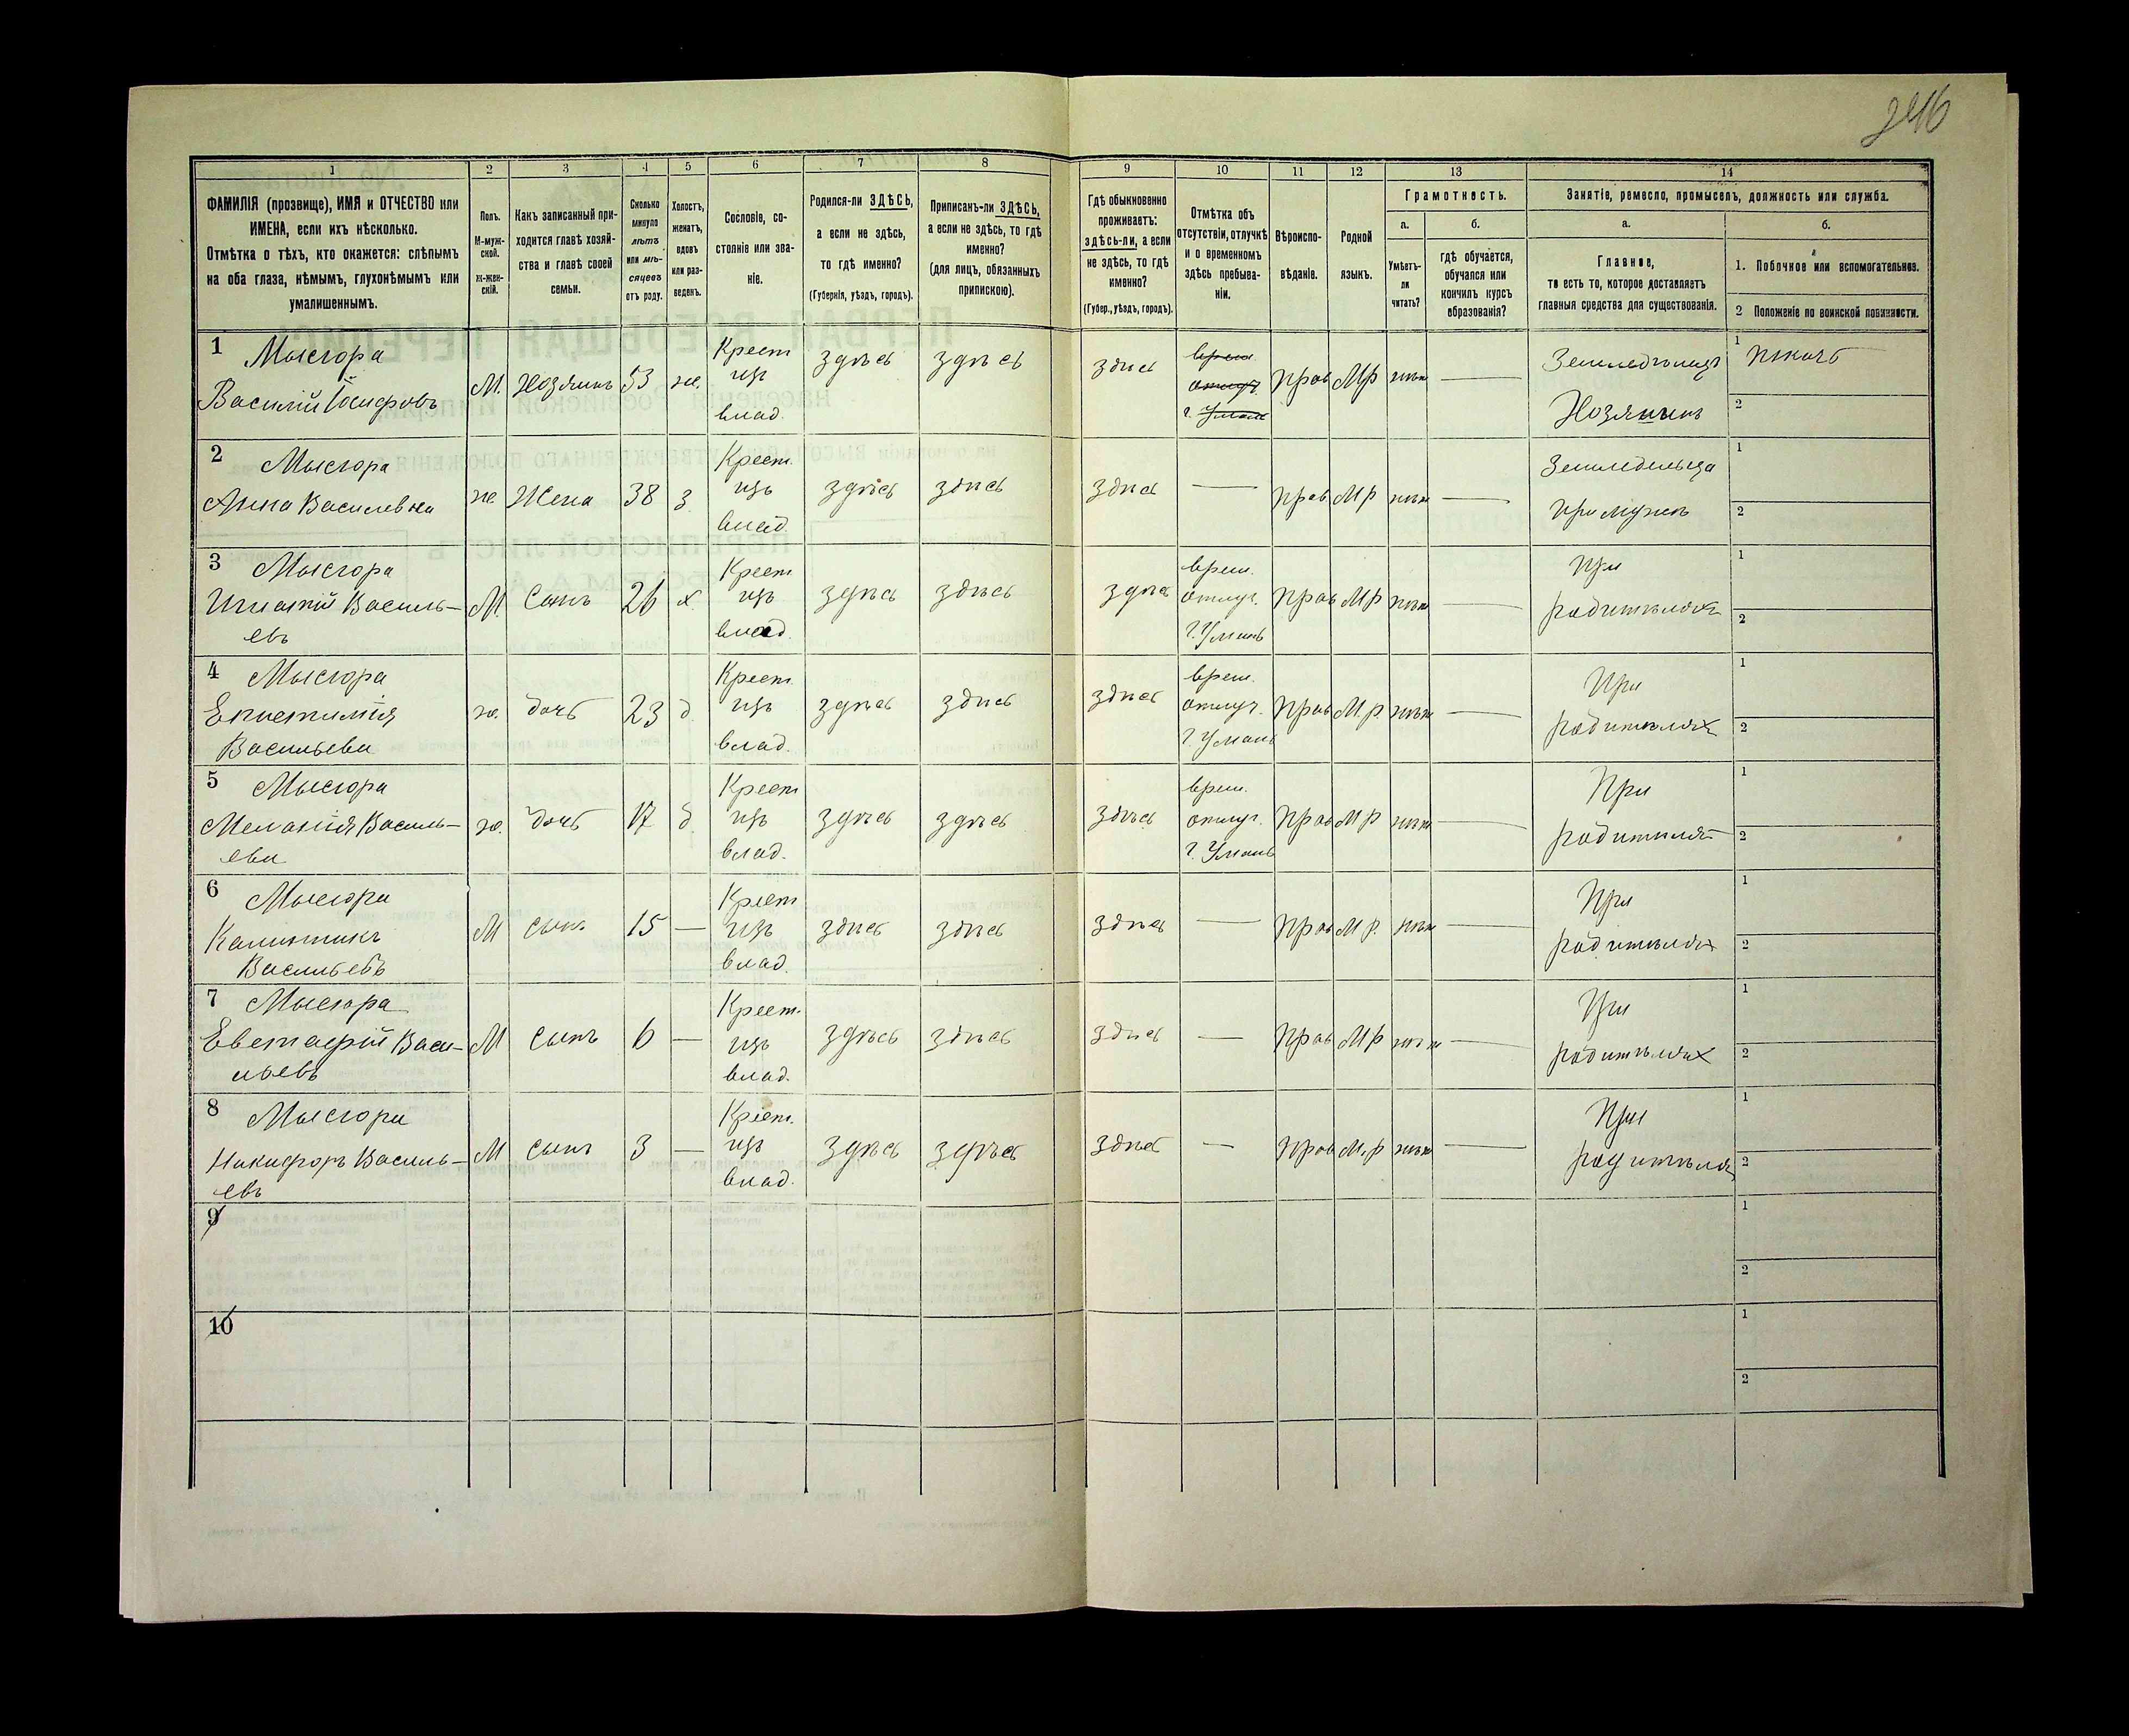 246
1 2 3 4 5 6 7 8 9 10 11 12 13 14
ФАМИЛІЯ (прозвище), ИМЯ и ОТЧЕСТВО или
ИМЕНА, если ихъ нѣсколько.
Отмѣтка о тѣхъ, кто окажется: слѣпымъ
на оба глаза, нѣмымъ, глухонѣмымъ или
умалишеннымъ.
Полъ.
М-муж-
ской.
Ж-жен-
скій.
Какъ записанный при-
ходится главѣ хозяй-
ства и главѣ своей
семьи.
Сколько
минуло
лѣтъ
или мѣ-
сяцевъ
отъ роду.
Холостъ,
женатъ,
вдовъ
или раз-
веденъ.
Сословіе, со-
стояніе или зва-
ніе.
Родился-ли ЗДѢСЬ,
а если не здѣсь,
то гдѣ именно?
(Губернія, уѣздъ, городъ).
Приписанъ-ли ЗДѢСЬ,
а если не здѣсь, то гдѣ
именно?
(для лицъ, обязанныхъ
припискою).
Гдѣ обыкновенно
проживаетъ:
здѣсь-ли, а если
не здѣсь, то гдѣ
именно?
(Губер., уѣздъ, городъ).
Отмѣтка объ
отсутствіи, отлучкѣ
и о временномъ
здѣсь пребыва-
ніи.
Вѣроиспо-
вѣданіе.
Родной
языкъ.
Грамотность.
а.
Умѣетъ-
ли
читать?
б.
гдѣ обучается,
обучался или
кончилъ курсъ
образованія?
Занятіе, ремесло, промыселъ, должность или служба.
а.
Главное,
то есть то, которое доставляетъ
главныя средства для существованія.
б.
1. Побочное или вспомогательное.
2 Положеніе по воинской повинности.
1 Мысюра
Василій Іосифовъ
М. Хозяинъ 53 ж.
Крест
изъ
влад.
здѣсь здѣсь здѣсь
врем.
отлуч.
г. Умань
прав М.р нѣт —
Земледѣлецъ
Хозяинъ
1 2
2 Мысюра
Анна Василевна
ж. Жена 38 з.
Крест.
изъ
влад.
здѣсь здѣсь здѣсь — прав М.р нѣт —
Земледельца
при мужѣ
1 2
3 Мысюра
Игнатій Василь-
евъ
М. Сынъ 26 х.
Крест.
изъ
влад.
здѣсь здѣсь здѣсь
врем.
отлуч.
г. Умань
прав М.р нѣт —
При
родителяхъ
1 2
4 Мысюра
Епистимія
Васильева
ж. дочь 23 д.
Крест.
изъ
влад.
здѣсь здѣсь здѣсь
врем.
отлуч.
г. Умань
прав М.р. нѣт —
При
родителях
1 2
5 Мысюра
Меланія Василь-
ева
ж. дочь 17 д.
Крест
изъ
влад.
здѣсь здѣсь здѣсь
врем.
отлуч.
г. Умань
прав М.р нѣт —
При
родителях
1 2
6 Мысюра
Калинникъ
Васильевъ
М сынъ 15 —
Крест
изъ
влад.
здѣсь здѣсь здѣсь — прав М.р. нѣт —
При
родителях
1 2
7 Мысюра
Евстафій Васи-
льевъ
М сынъ 6 —
Крест.
изъ
влад.
здѣсь здѣсь здѣсь — прав М.р нѣт —
При
родителях
1 2
8 Мысюра
Никифоръ Василь-
евъ
М сынъ 3 —
Крест.
изъ
влад.
здѣсь здѣсь здѣсь — прав М.р нѣт —
При
родителях
1 2
9
1 2
10
1 2